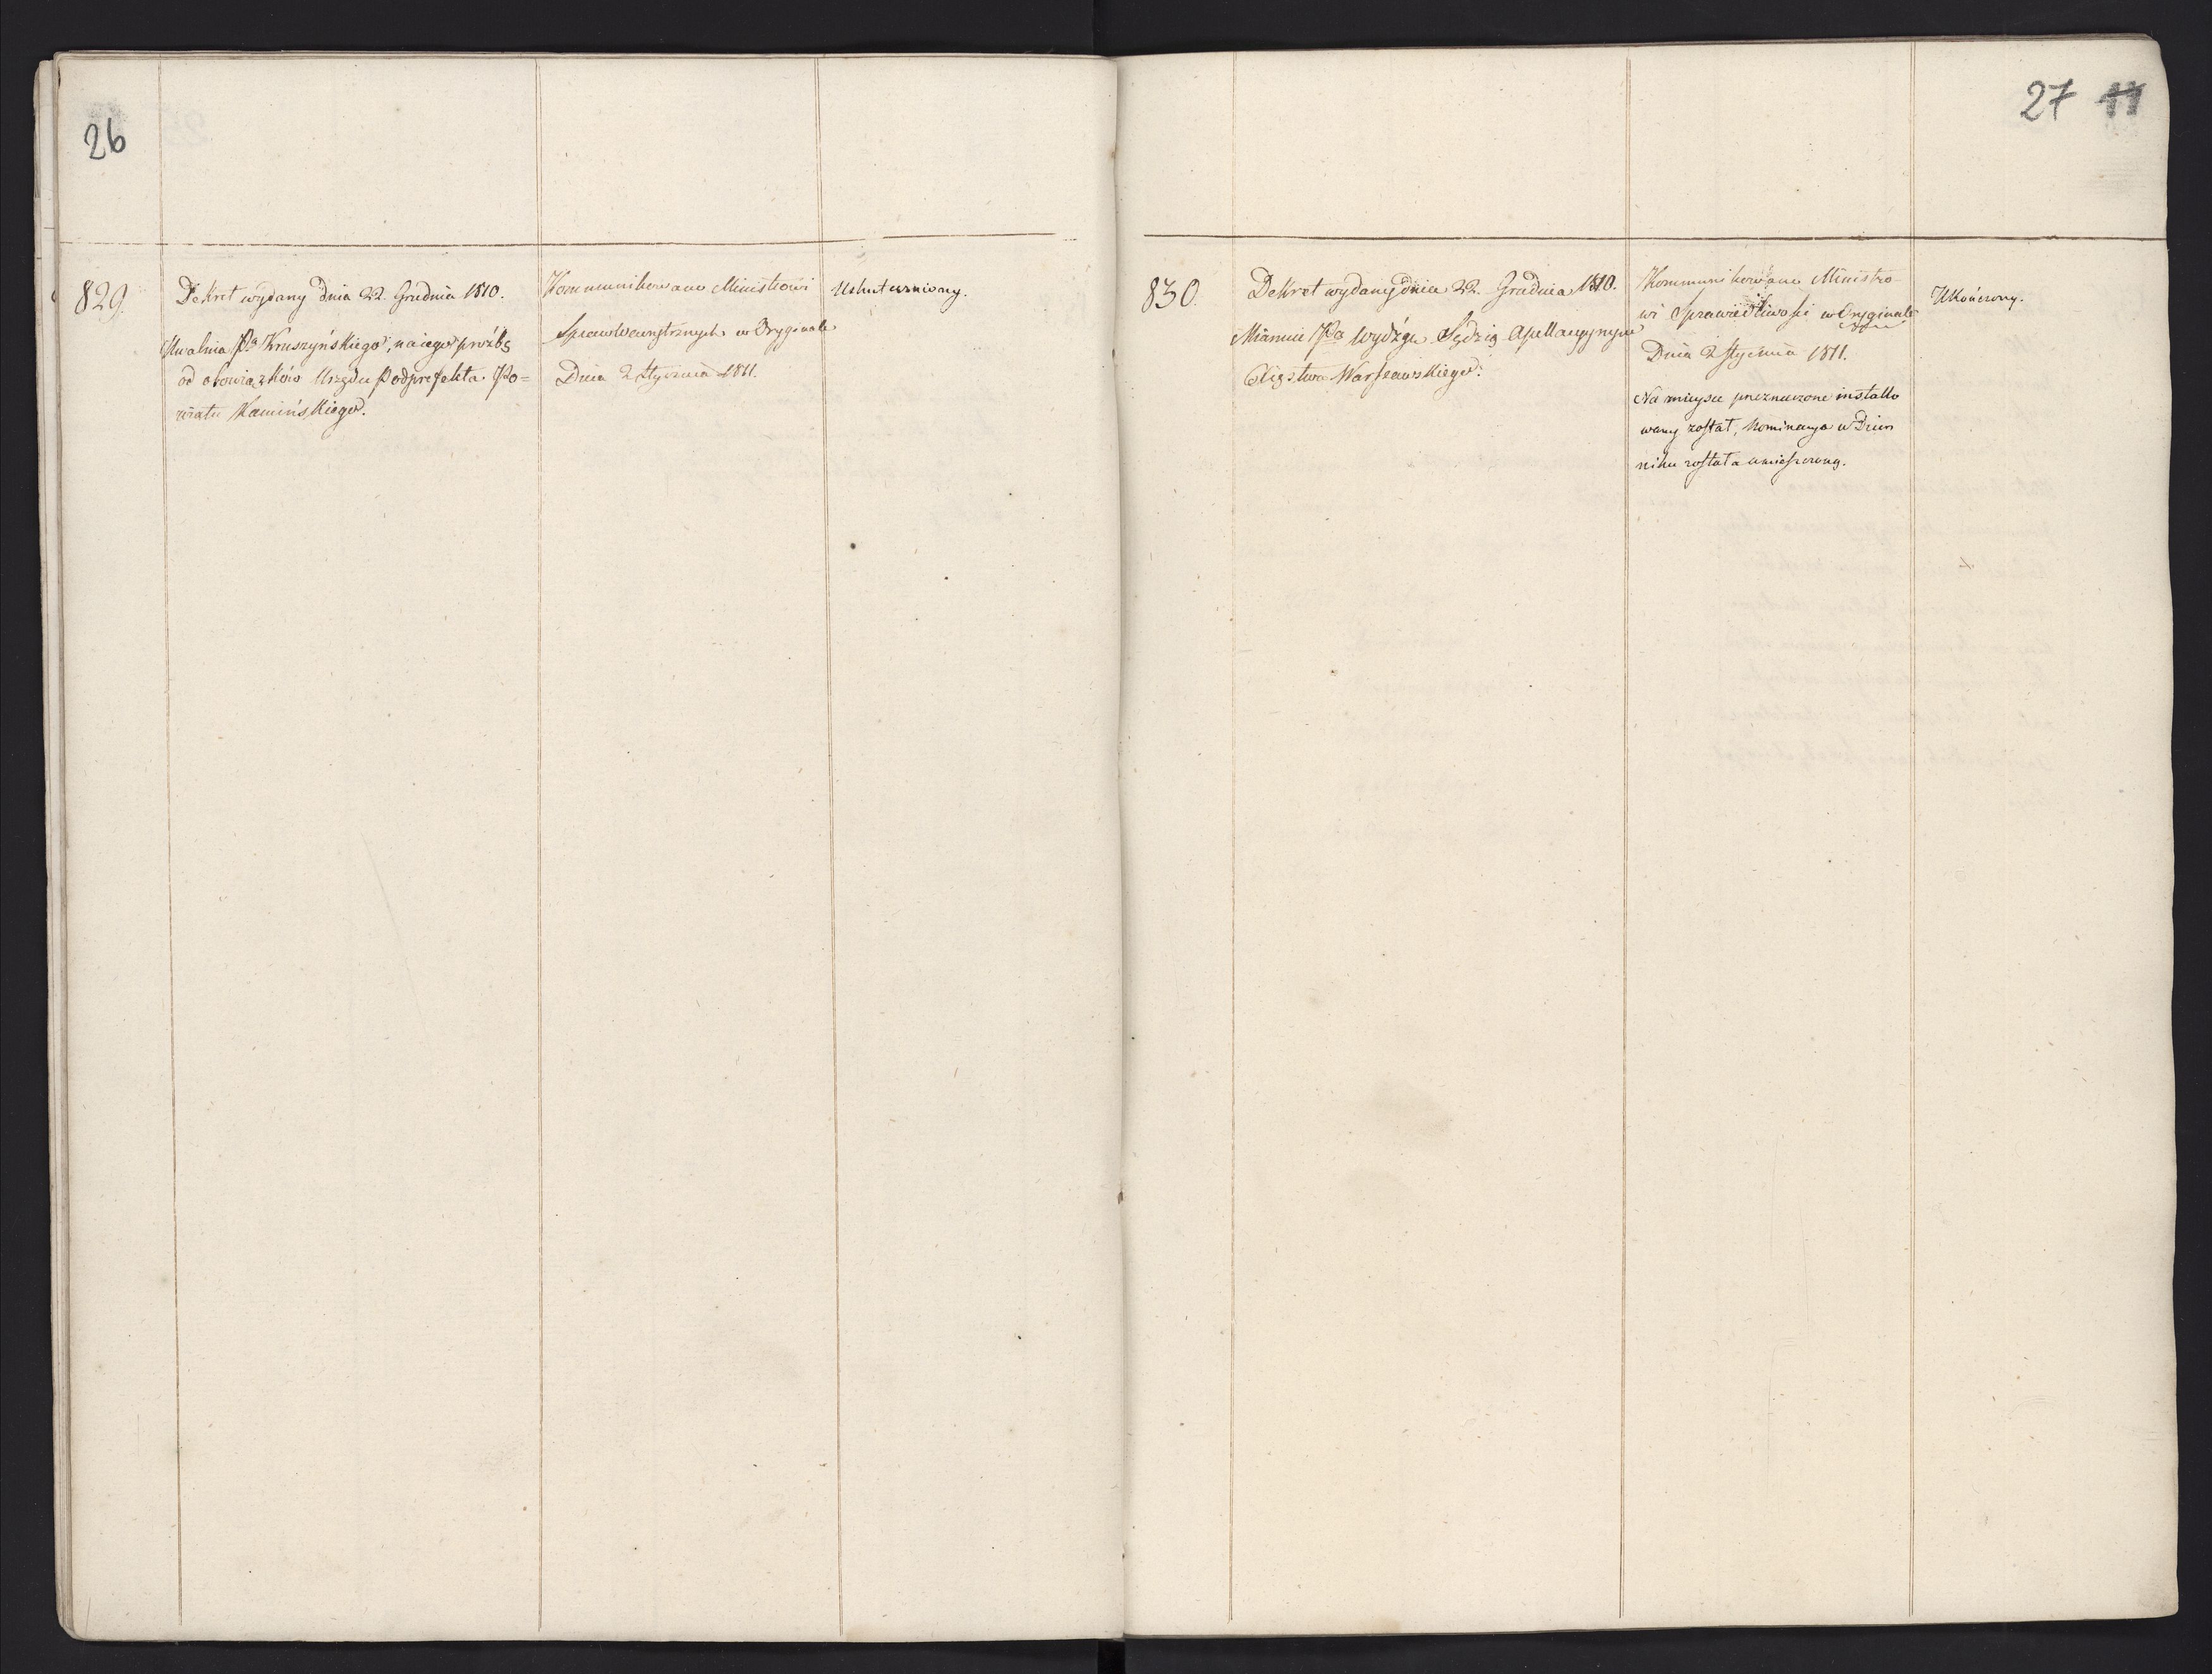 26
829.
Dekret wydany Dnia 22. Grudnia 1810.
Uwalnia Pa Kruszyńskiego, na iego proźbę
od obowiązków Urzędu Podprefekta Po=
wiatu Kamińskiego.
Kommunikowano Ministrowi
Spraw Wewnętrznych w Oryginale
Dnia 2 Stycznia 1811.
Uskuteczniony.
27 11
830.
Dekret wydany dnia 22. Grudnia 1810.
Mianuie Pa Wydżgę Sędzią Apellacyinym
Xięstwa Warszawskiego.
Kommunikowano Ministro-
wi Sprawiedliwości w Oryginale
Dnia 2 Stycznia 1811.
Na mieysce przeznaczone installo
wany został, Nominacya w Dzien
niku została umieszczoną.
Ukończony.